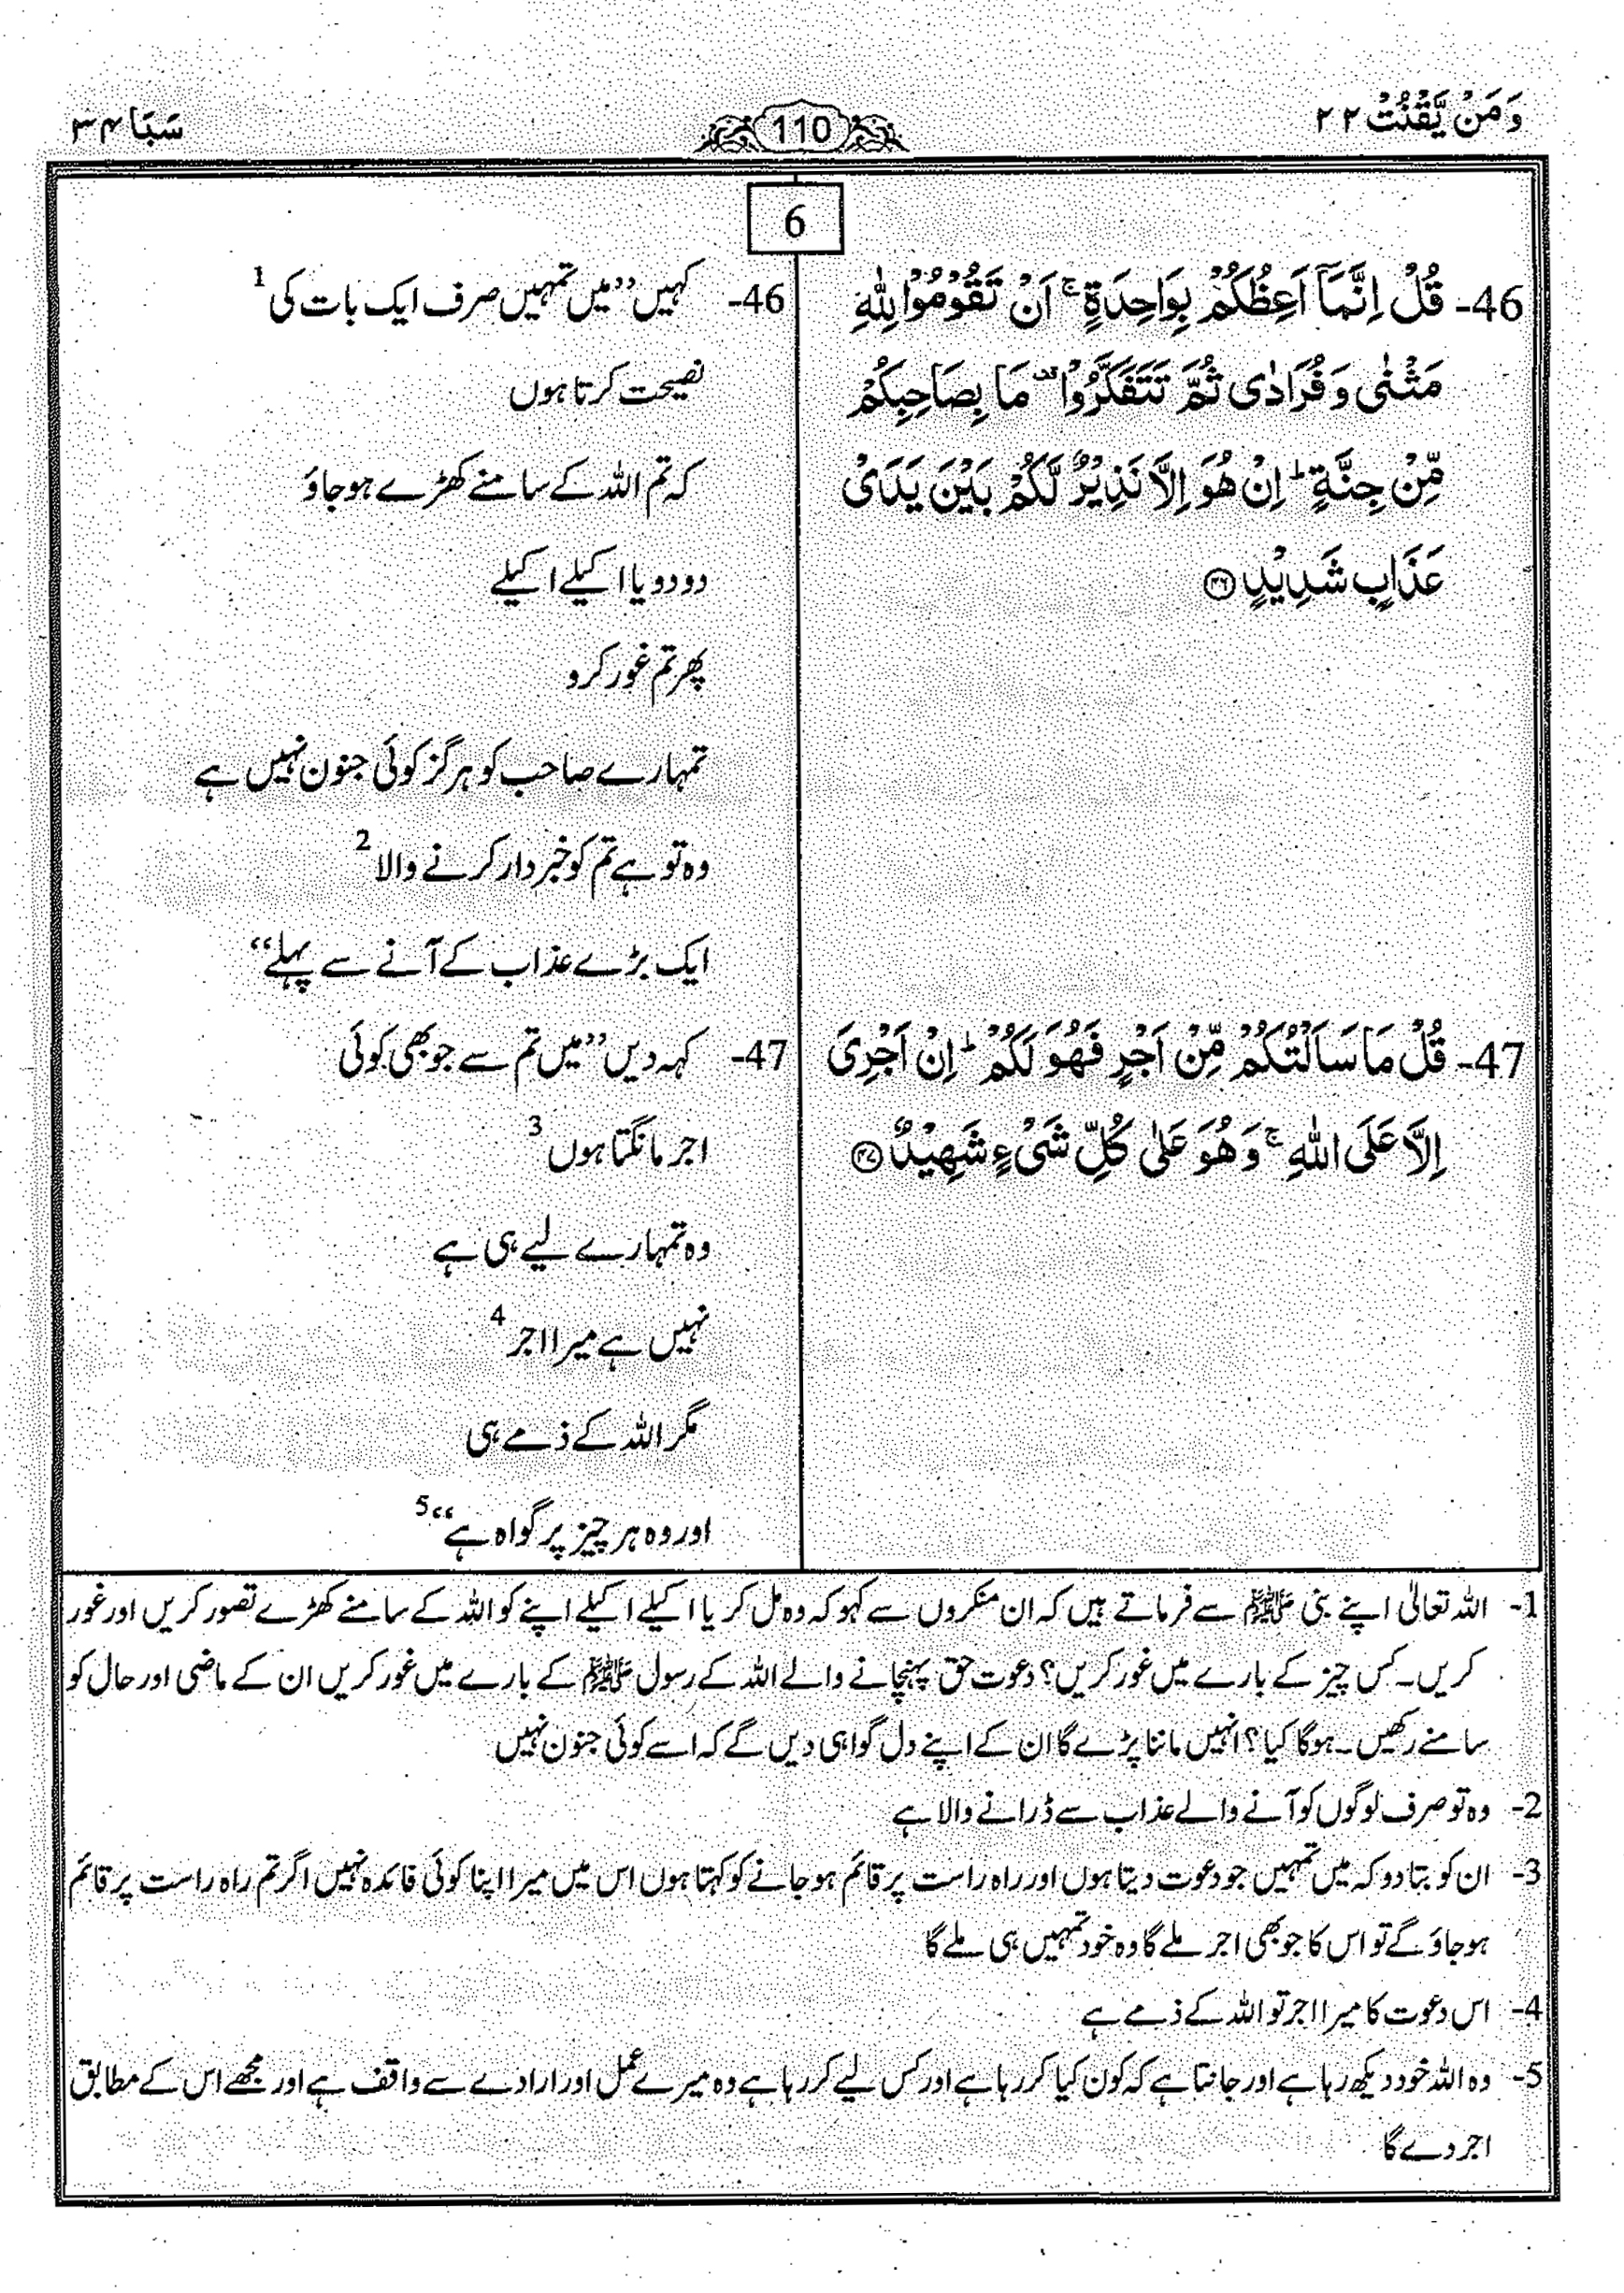 وَمَنْ يَّقْنُتْ ۲۲
110
سَبَا ۳۴
6
46- قُلْ اِنَّمَاۤ اَعِظُكُمْ بِوَاحِدَةٍ ۚ اَنْ تَقُوْمُوْا لِلّٰهِ
مَثْنٰى وَفُرَادٰى ثُمَّ تَتَفَكَّرُوْا ۫ مَا بِصَاحِبِكُمْ
مِّنْ جِنَّةٍ ؕ اِنْ هُوَ اِلَّا نَذِيْرٌ لَّكُمْ بَيْنَ يَدَیْ
عَذَابٍ شَدِيْدٍ ﴿۴۶﴾
47- قُلْ مَا سَاَلْتُكُمْ مِّنْ اَجْرٍ فَهُوَ لَكُمْ ؕ اِنْ اَجْرِیَ
اِلَّا عَلَى اللّٰهِ ۚ وَهُوَ عَلٰى كُلِّ شَیْءٍ شَهِيْدٌ ﴿۴۷﴾
46- کہیں ’’میں تمہیں صرف ایک بات کی 1
نصیحت کرتا ہوں
کہ تم اللہ کے سامنے کھڑے ہو جاؤ
دو دو یا اکیلے اکیلے
پھر تم غور کرو
تمہارے صاحب کو ہرگز کوئی جنون نہیں ہے
وہ تو ہے تم کو خبردار کرنے والا 2
ایک بڑے عذاب کے آنے سے پہلے‘‘
47- کہہ دیں ’’میں تم سے جو بھی کوئی
اجر مانگتا ہوں 3
وہ تمہارے لیے ہی ہے
نہیں ہے میرا اجر 4
مگر اللہ کے ذمے ہی
اور وہ ہر چیز پر گواہ ہے‘‘ 5
1- اللہ تعالیٰ اپنے نبی ﷺ سے فرماتے ہیں کہ ان منکروں سے کہو کہ وہ مل کر یا اکیلے اکیلے اپنے کو اللہ کے سامنے کھڑے تصور کریں اور غور
کریں۔ کس چیز کے بارے میں غور کریں؟ دعوت حق پہنچانے والے اللہ کے رسول ﷺ کے بارے میں غور کریں ان کے ماضی اور حال کو
سامنے رکھیں۔ ہوگا کیا؟ انہیں ماننا پڑے گا ان کے اپنے دل گواہی دیں گے کہ اسے کوئی جنون نہیں
2- وہ تو صرف لوگوں کو آنے والے عذاب سے ڈرانے والا ہے
3- ان کو بتا دو کہ میں تمہیں جو دعوت دیتا ہوں اور راہ راست پر قائم ہو جانے کو کہتا ہوں اس میں میرا اپنا کوئی فائدہ نہیں اگر تم راہ راست پر قائم
ہو جاؤ گے تو اس کا جو بھی اجر ملے گا وہ خود تمہیں ہی ملے گا
4- اس دعوت کا میرا اجر تو اللہ کے ذمے ہے
5- وہ اللہ خود دیکھ رہا ہے اور جانتا ہے کہ کون کیا کر رہا ہے اور کس لیے کر رہا ہے وہ میرے عمل اور ارادے سے واقف ہے اور مجھے اس کے مطابق
اجر دے گا